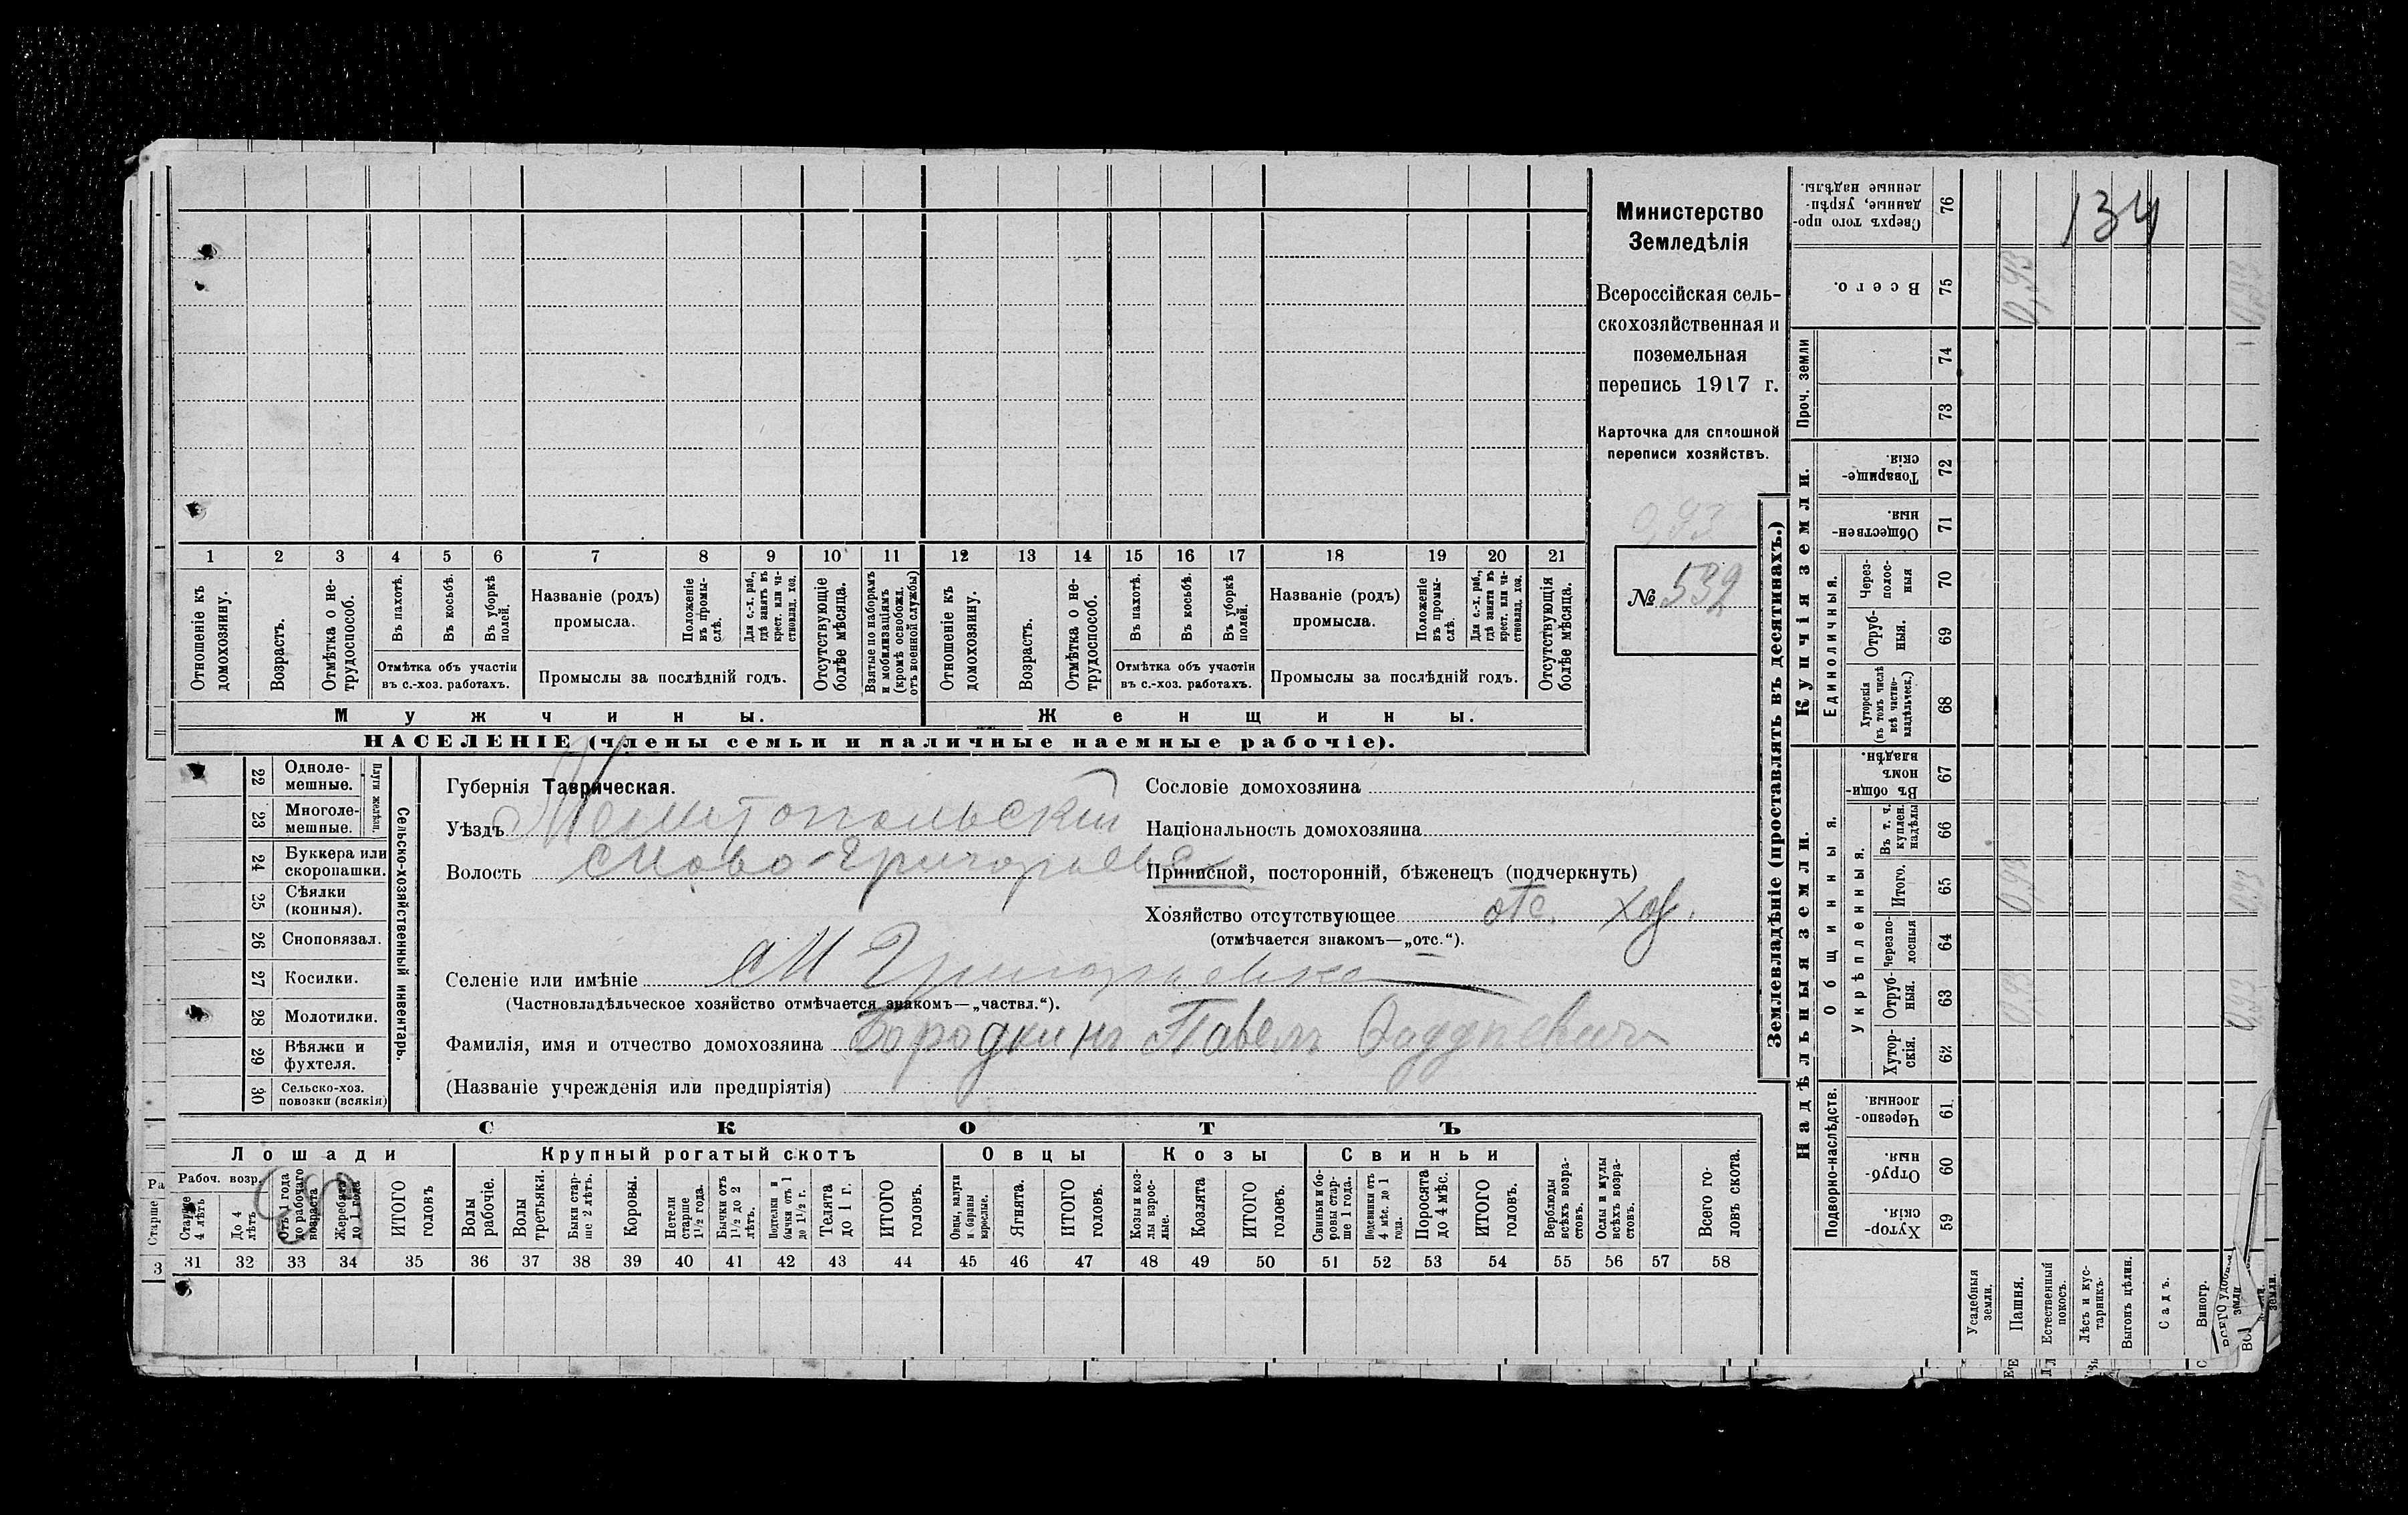 134
Министерство
Земледѣлія
Всероссійская сель-
скохозяйственная и
поземельная
перепись 1917 г.
Карточка для сплошной
переписи хозяйствъ.
№ 532
1 2 3 4 5 6 7 8 9 10 11 12 13 14 15 16 17 18 19 20 21
Отношеніе къ домохозяину.
Возрастъ.
Отмѣтка о не-трудоспособ.
Въ пахотѣ.
Въ косьбѣ.
Въ уборкѣ полей.
Отмѣтка объ участіи
въ с.-хоз. работахъ.
Названіе (родъ)
промысла.
Положеніе въ промы-слѣ.
Для с.-х. раб., гдѣ занятъ въ крест. или ча-стновлад. хоз.
Промыслы за послѣдній годъ.
Отсутствующіе болѣе мѣсяца.
Взятые по наборамъ и мобилизаціямъ (кромѣ освобожд. отъ военной службы)
Отношеніе къ домохозяину.
Возрастъ.
Отмѣтка о не-трудоспособ.
Въ пахотѣ.
Въ косьбѣ.
Въ уборкѣ полей.
Отмѣтка объ участіи
въ с.-хоз. работахъ.
Названіе (родъ)
промысла.
Положеніе въ промы-слѣ.
Для с.-х. раб., гдѣ занята въ крест. или ча-стновлад. хоз.
Промыслы за послѣдній годъ.
Отсутствующія болѣе мѣсяца.
Мужчины.
Женщины.
НАСЕЛЕНІЕ (члены семьи и наличные наемные рабочіе).
22 Одноле-мешные.
23 Многоле-мешные.
Плуги желѣзн.
24 Буккера или скоропашки.
25 Сѣялки (конныя).
26 Сноповязал.
27 Косилки.
28 Молотилки.
29 Вѣялки и фухтеля.
30 Сельско-хоз. повозки (всякія)
Сельско-хозяйственный инвентарь.
Губернія Таврическая.
Уѣздъ Мелитопольскій
Волость Ново-Григорьевс
Селеніе или имѣніе Н Григорьевка
(Частновладѣльческое хозяйство отмѣчается знакомъ—„частвл.“).
Фамилія, имя и отчество домохозяина Бородкинъ Павелъ Фаддѣевичъ
(Названіе учрежденія или предпріятія)
Сословіе домохозяина
Національность домохозяина
Приписной, посторонній, бѣженецъ (подчеркнуть)
Хозяйство отсутствующее отс. хоз.
(отмѣчается знакомъ—„отс.“).
СКОТЪ
Лошади
Крупный рогатый скотъ
Овцы
Козы
Свиньи
Рабоч. возр.
Старше 4 лѣтъ
До 4 лѣтъ
Отъ 1 года до рабочаго возраста
Жеребята до 1 года
ИТОГО головъ
Волы рабочіе.
Волы третьяки.
Быки стар-ше 2 лѣтъ.
Коровы.
Нетели старше 1½ года.
Бычки отъ 1½ до 2 лѣтъ.
Подтелки и бычки отъ 1 до 1½ г.
Телята до 1 г.
ИТОГО головъ.
Овцы, валухи и бараны взрослые.
Ягнята.
ИТОГО головъ.
Козы и коз-лы взрос-лые.
Козлята
ИТОГО головъ.
Свиньи и бо-ровы стар-ше 1 года.
Подсвинки отъ 4 мѣс. до 1 года.
Поросята до 4 мѣс.
ИТОГО головъ.
Верблюды всѣхъ возра-стовъ.
Ослы и мулы всѣхъ возра-стовъ.
Всего го-ловъ скота.
31 32 33 34 35 36 37 38 39 40 41 42 43 44 45 46 47 48 49 50 51 52 53 54 55 56 57 58
Землевладѣніе (проставлять въ десятинахъ.)
Надѣльныя земли.
Купчія земли.
Проч. земли
Подворно-наслѣдств.
Общинныя.
Укрѣпленныя.
Единоличныя.
Сверхъ того про-данные, укрѣп-ленные надѣлы. 76
Всего. 75 0,93 0,93
74
73
Товарище-скія. 72
Обществен-ныя. 71
Через-полос-ныя 70
Отруб-ныя. 69
Хуторскія (въ томъ числѣ всѣ частно-владѣльческ.) 68
Въ общин-номъ владѣн. 67
Въ т. ч. куплен. надѣлы 66
Итого. 65 0,93 0,93
Черезпо-лосныя 64
Отруб-ныя. 63 0,93 0,93
Хутор-скія. 62
Черезпо-лосныя. 61
Отруб-ныя. 60
Хутор-скія. 59
Усадебныя земли.
Пашня.
Естественный покосъ.
Лѣсъ и кус-тарникъ.
Выгонъ цѣлин.
Садъ.
Виногр.